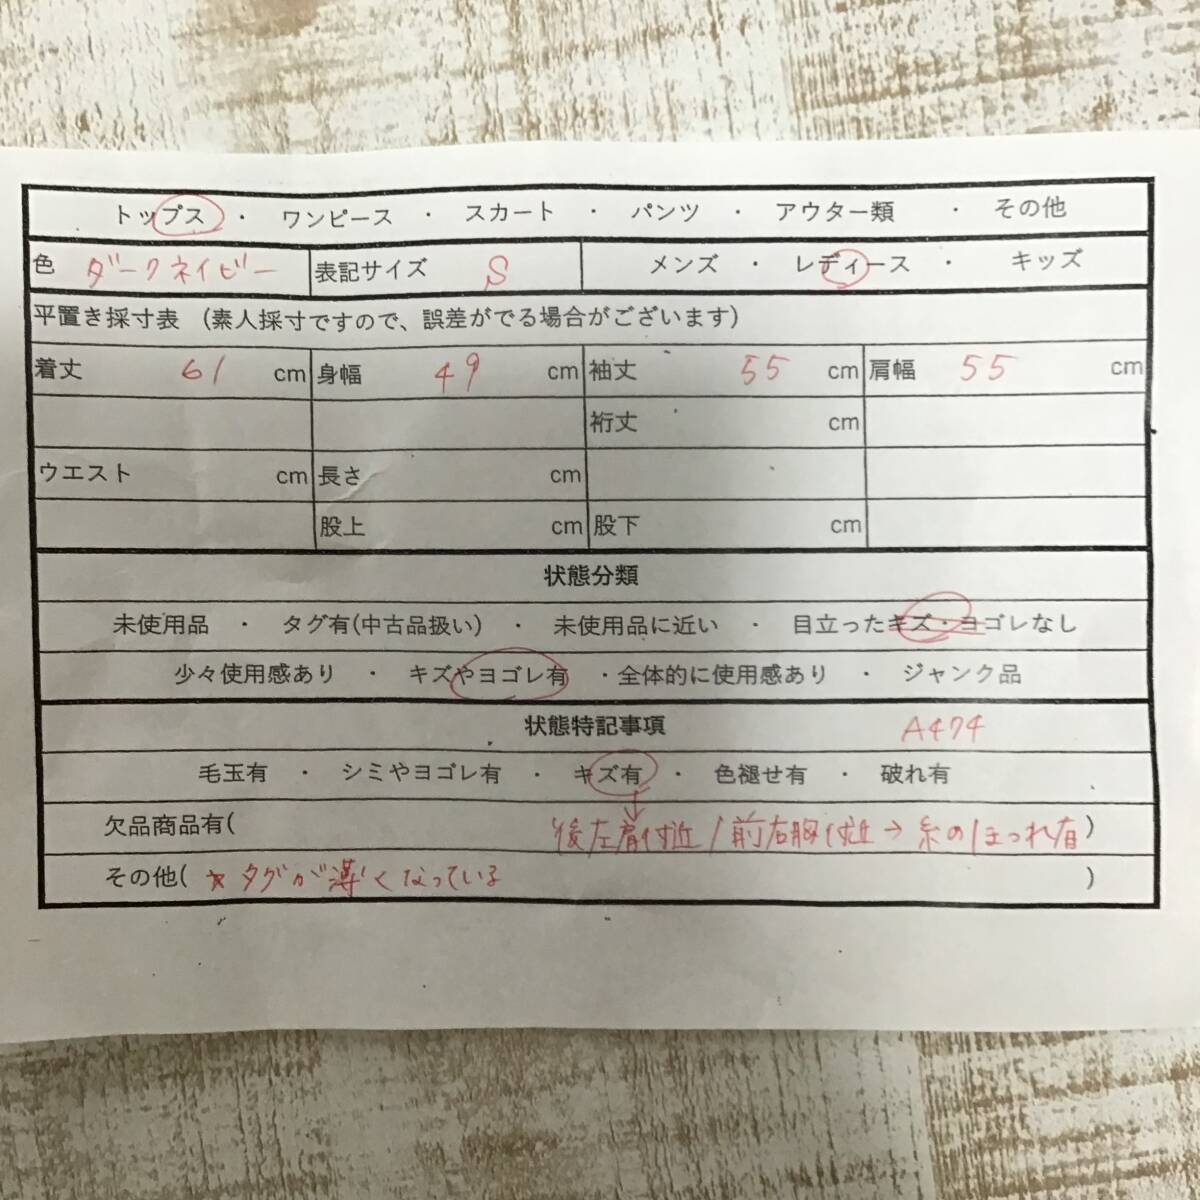 トップス ・ ワンピース ・ スカート ・ パンツ ・ アウター類 ・ その他
色 ダークネイビー 表記サイズ S メンズ ・ レディース ・ キッズ
平置き採寸表 (素人採寸ですので、誤差がでる場合がございます)
着丈 61 cm 身幅 49 cm 袖丈 55 cm 肩幅 55 cm
裄丈 cm
ウエスト cm 長さ cm
股上 cm 股下 cm
状態分類
未使用品 ・ タグ有(中古品扱い) ・ 未使用品に近い ・ 目立ったキズ・ヨゴレなし
少々使用感あり ・ キズやヨゴレ有 ・全体的に使用感あり ・ ジャンク品
状態特記事項 A474
毛玉有 ・ シミやヨゴレ有 ・ キズ有 ・ 色褪せ有 ・ 破れ有
欠品商品有( 後左肩付近/前右胸付近→糸のほつれ有 )
その他( *タグが薄くなっている )